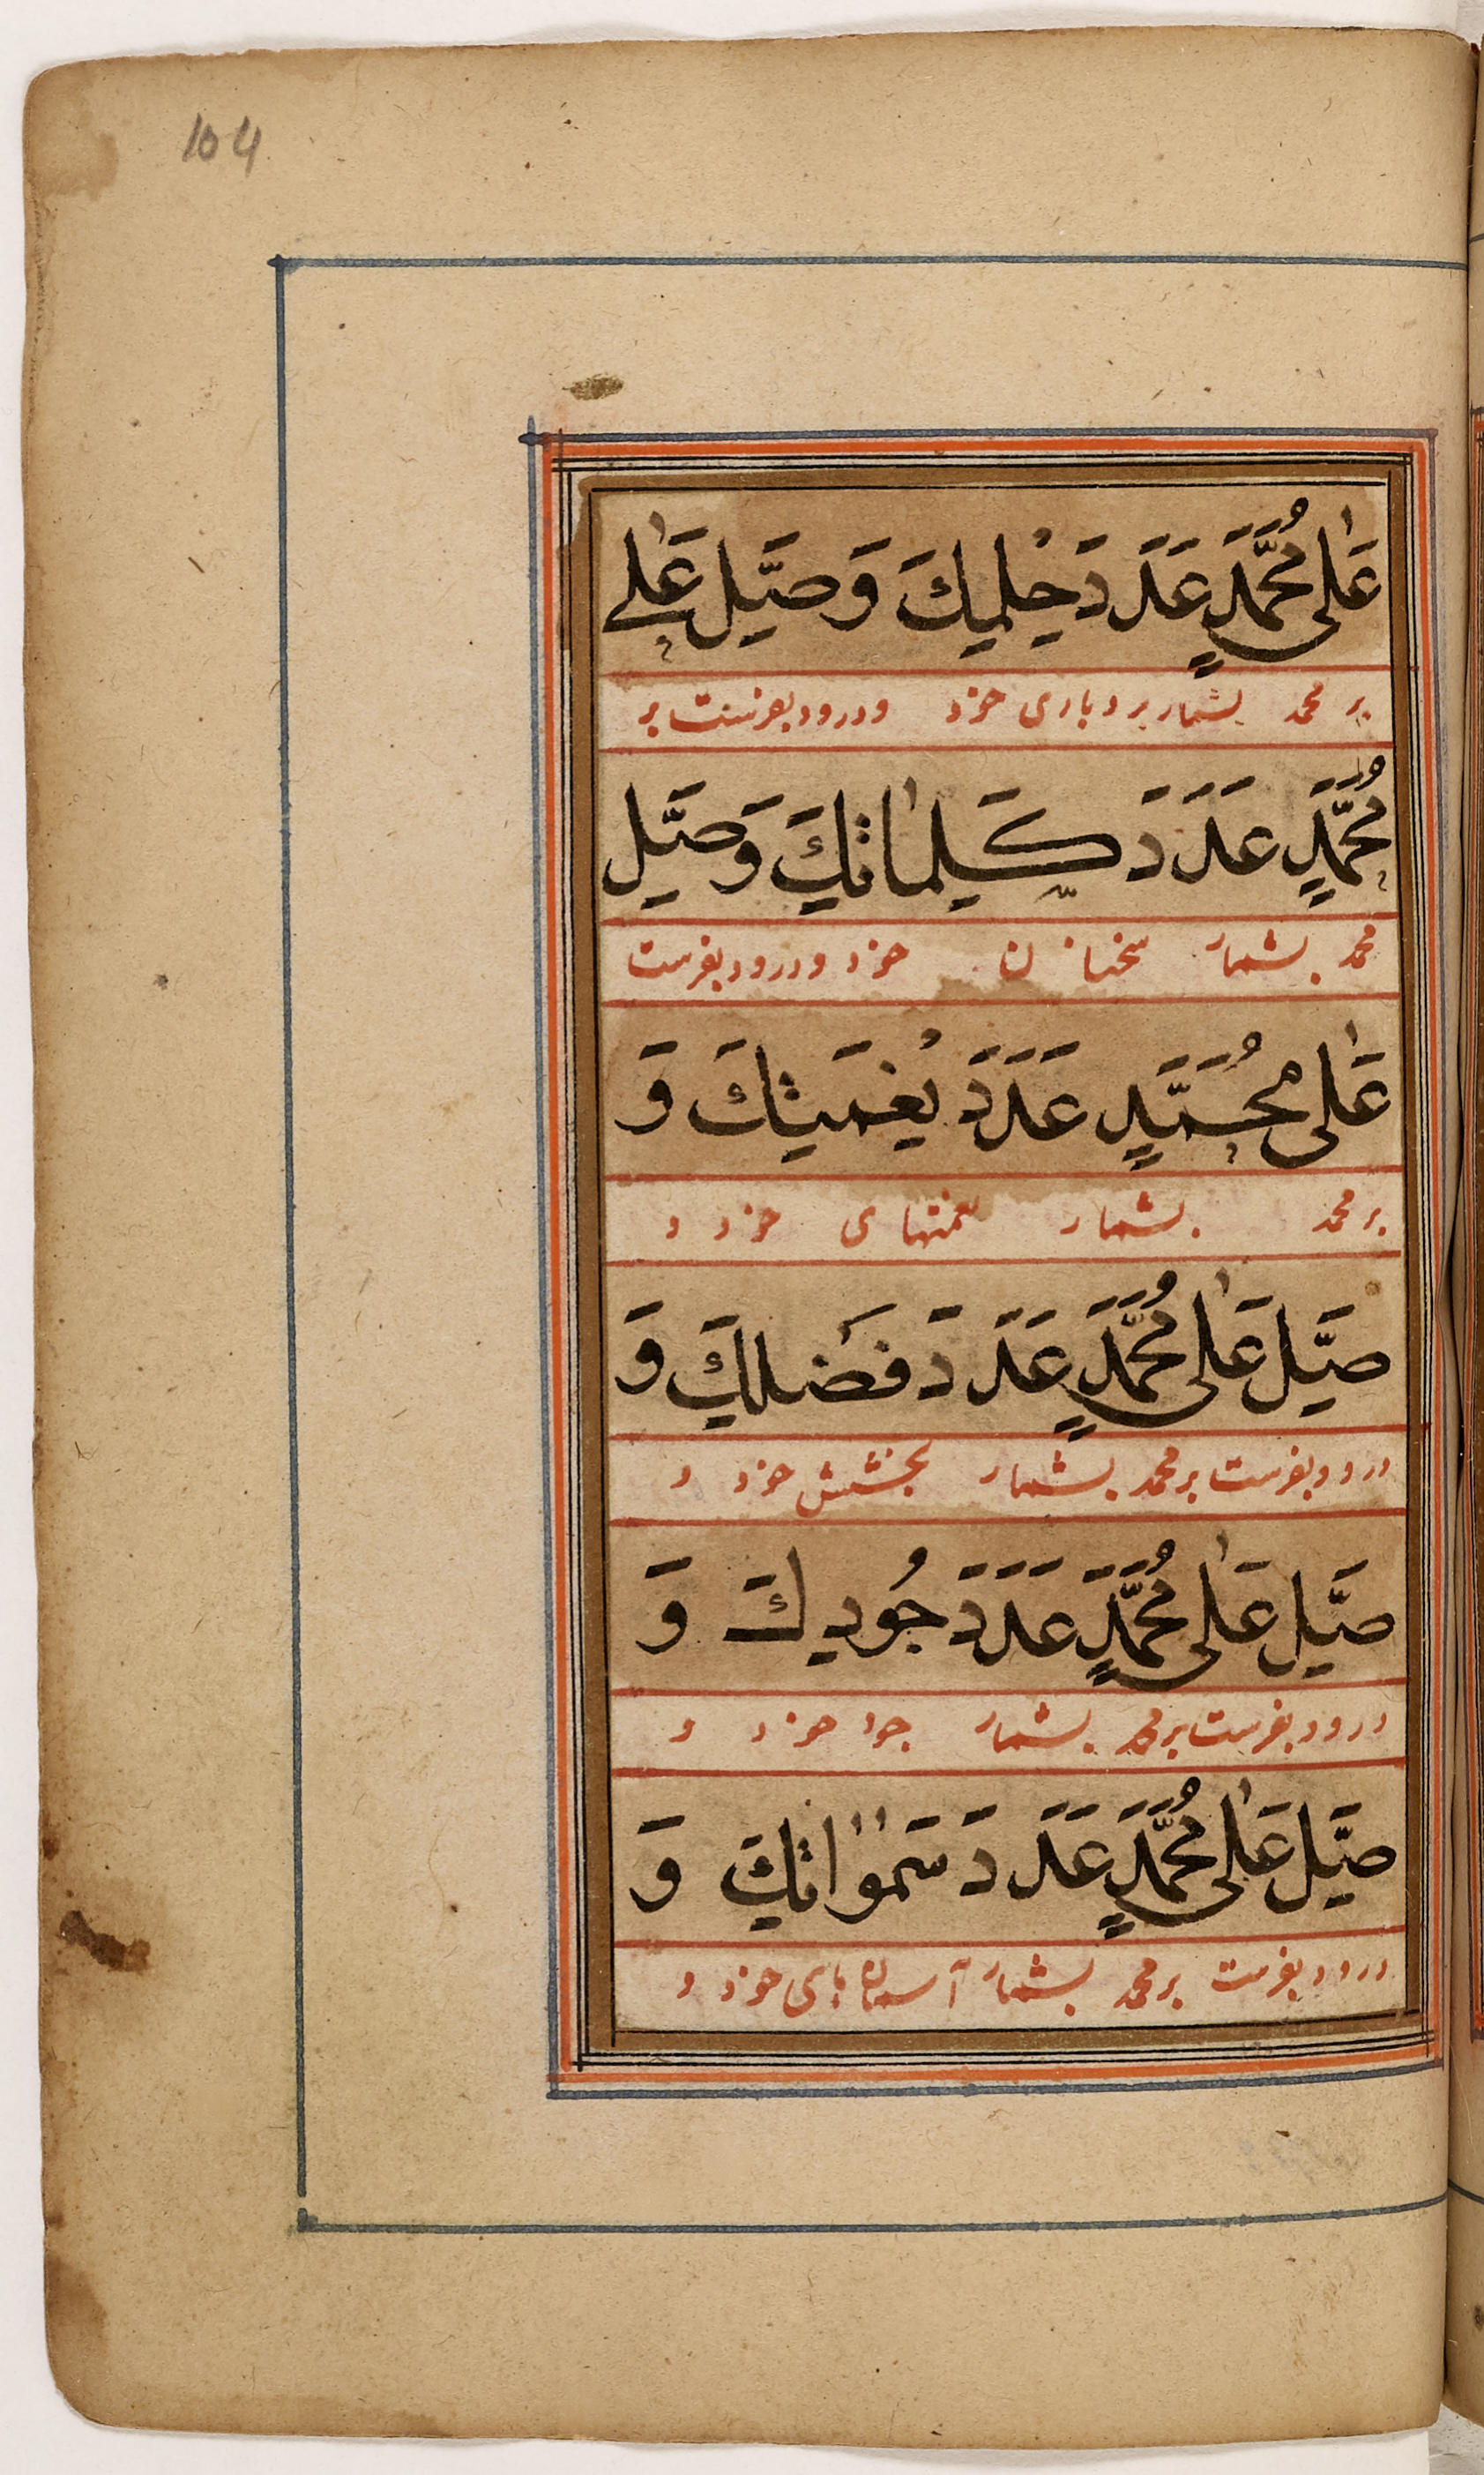 104
عَلٰى مُحَمَّدٍ عَدَدَ حِلْمِكَ وَصَلِّ عَلٰے
بر محمد بشمار بردباری خود و درود بفرست بر
مُحَمَّدٍ عَدَدَ كَلِمَاتِكَ وَصَلِّ
محمد بشمار سخنان خود و درود بفرست
عَلٰى مُحَمَّدٍ عَدَدَ نِعْمَتِكَ وَ
بر محمد بشمار نعمتهای خود و
صَلِّ عَلٰى مُحَمَّدٍ عَدَدَ فَضْلِكَ وَ
درود بفرست بر محمد بشمار بخشش خود و
صَلِّ عَلٰى مُحَمَّدٍ عَدَدَ جُودِكَ وَ
درود بفرست بر محمد بشمار جود خود و
صَلِّ عَلٰى مُحَمَّدٍ عَدَدَ سَمٰوَاتِكَ وَ
درود بفرست بر محمد بشمار آسمان هاى خود و